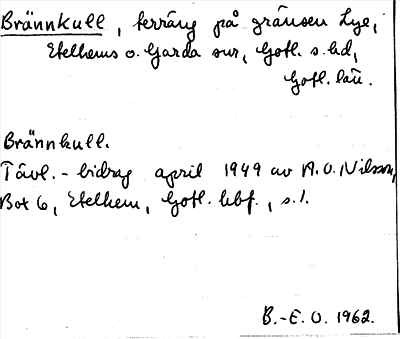 Brännkull, terräng på gränsen Lye,
Etelhems o. Garda snr, Gotl. s. hd,
Gotl. län.
Brännkull.
Tävl.-bidrag april 1949 av A.O. Nilsson,
Box 6, Etelhem, Gotl. hbf., s.1.
B.-E. O. 1962.